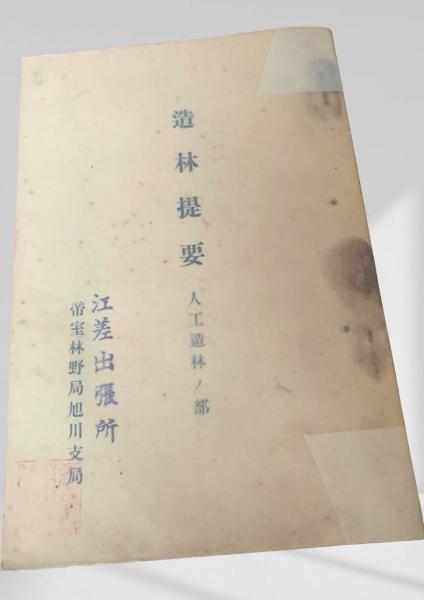 造林提要
人工造林ノ部
江差出張所
帝室林野局旭川支局